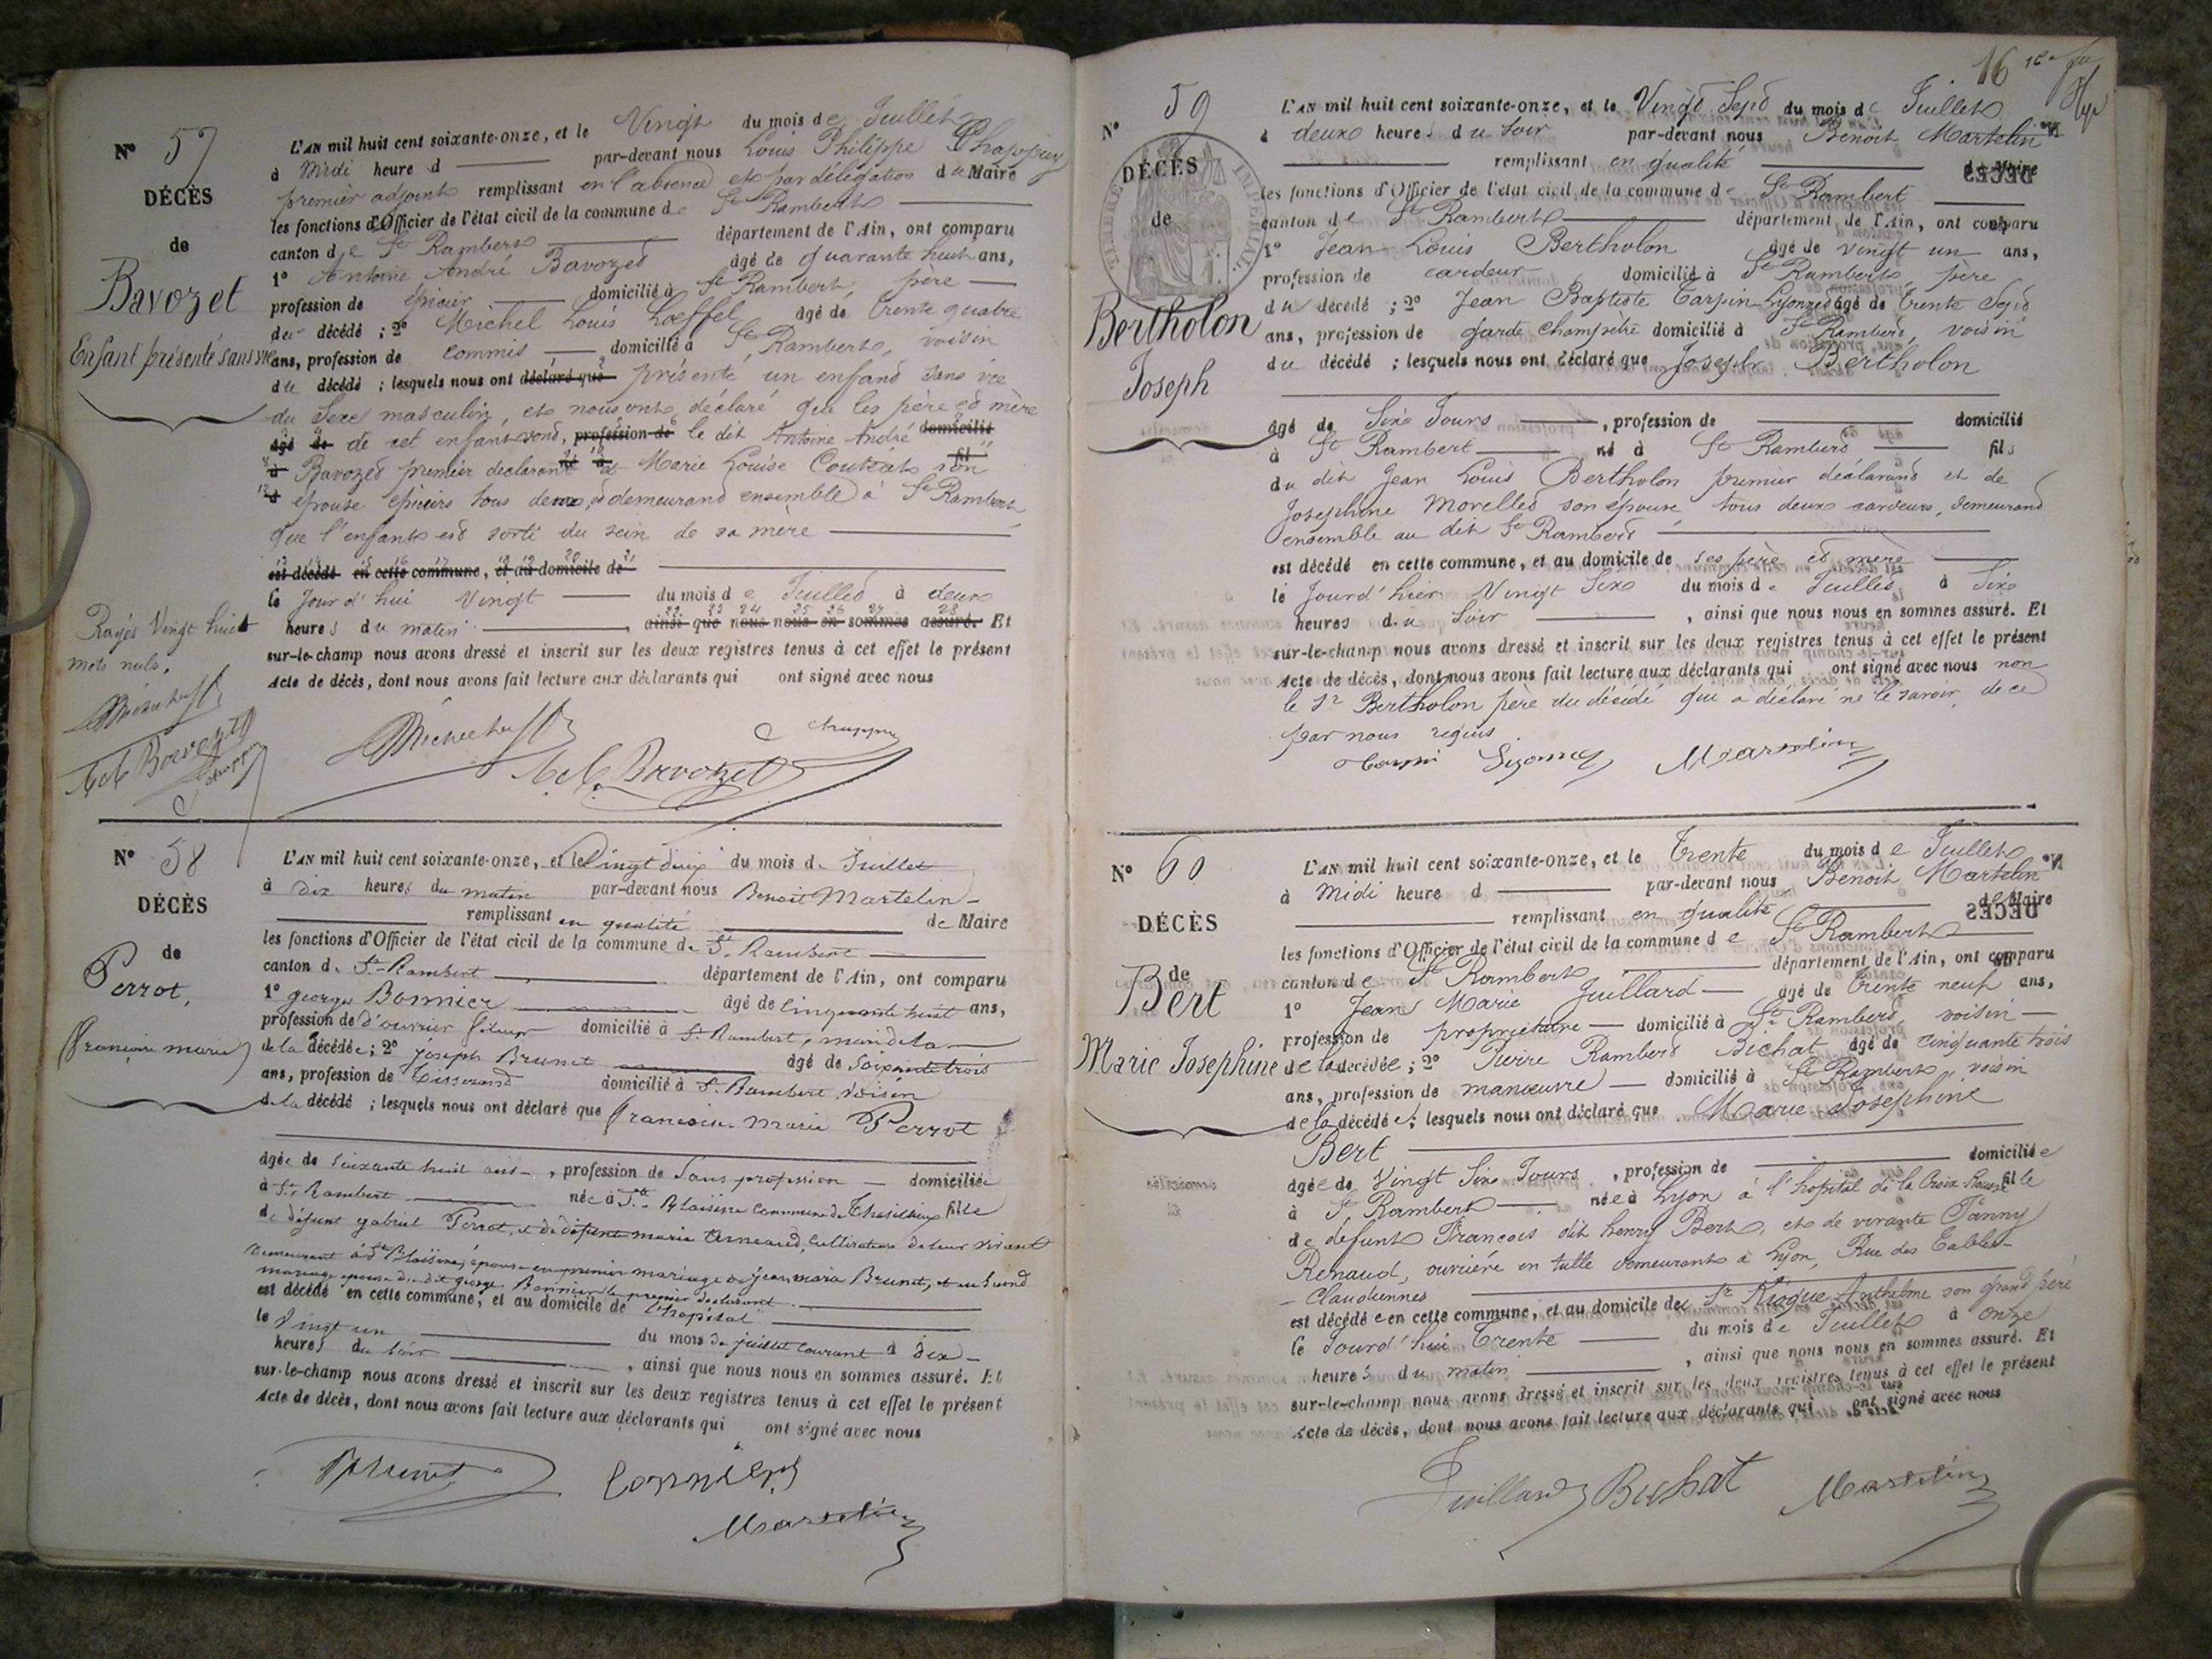 N° 57
DÉCÈS
de
Bavozet
Enfant présenté sans vie
Rayés Vingt huit
mots nuls.
L'AN mil huit cent soixante-onze, et le Vingt du mois de Juillet
à Midi heure d par-devant nous Louis Philippe Chappuy
premier adjoint remplissant en l'absence et par délégation du Maire
les fonctions d'Officier de l'état civil de la commune de St Rambert
canton de St Rambert département de l'Ain, ont comparu
1° Antoine André Bavozet âgé de quarante huit ans,
profession de épicier domicilié à St Rambert, père
du décédé ; 2° Michel Louis Loeffel âgé de trente quatre
ans, profession de commis domicilié à St Rambert, voisin
du décédé ; lesquels nous ont déclaré que présenté un enfant sans vie
du Sexe masculin, et nous ont déclaré que les père et mère
âgé de de cet enfant sont, profession de le dit Antoine André domicilié
à Bavozet premier déclarant né à et Marie Louise son fil
à épouse épiciers tous deux, et demeurant ensemble à St Rambert
que l'enfant est sorti du sein de sa mère
est décédé en cette commune, et au domicile de
le Jourd'hui Vingt du mois de Juillet à deux
heures du matin , ainsi que nous nous en sommes assuré. Et
sur-le-champ nous avons dressé et inscrit sur les deux registres tenus à cet effet le présent
Acte de décès, dont nous avons fait lecture aux déclarants qui ont signé avec nous
Bavozet Chappuy
N° 58
DÉCÈS
de
Perrot,
Françoise marie
L'AN mil huit cent soixante-onze, et le Vingt deux du mois de Juillet
à dix heures du matin par-devant nous Benoit Martelin
remplissant en qualité de Maire
les fonctions d'Officier de l'état civil de la commune de St. Rambert
canton de St-Rambert département de l'Ain, ont comparu
1° georges Bonnier âgé de Cinquante huit ans,
profession de d'ouvrier fileur domicilié à St. Rambert, mari de la
de la décédée ; 2° joseph Brunet âgé de Soixante trois
ans, profession de Tisserand domicilié à St. Rambert, voisin
de la décédé ; lesquels nous ont déclaré que françoise marie Perrot
âgée de Soixante huit ans , profession de Sans profession domiciliée
à St. Rambert née à Ste Blaisine Commune de fille
de défunt gabriel Perrot, et de défunte marie Cultivateurs de leur vivant
demeurant à Ste Blaisine, épouse en premier mariage de jean marie Brunet, et en Second
mariage épouse du dit georges Bonnier le premier déclarant
est décédé en cette commune, et au domicile de l'hopital
le Vingt un du mois de juillet courant à dix
heures du Soir , ainsi que nous nous en sommes assuré. Et
sur-le-champ nous avons dressé et inscrit sur les deux registres tenus à cet effet le présent
Acte de décès, dont nous avons fait lecture aux déclarants qui ont signé avec nous
Brunet
Martelin
16
N° 59
DÉCÈS
de
TIMBRE IMPERIAL
Bertholon
Joseph
L'AN mil huit cent soixante-onze, et le Vingt Sept du mois de Juillet
à deux heures du Soir par-devant nous Benoit Martelin
remplissant en qualité de Maire
les fonctions d'Officier de l'état civil de la commune de St Rambert
canton de St Rambert département de l'Ain, ont comparu
1° Jean Louis Bertholon âgé de vingt un ans,
profession de cardeur domicilié à St Rambert père
du décédé ; 2° Jean Baptiste Carpin Lyonnet âgé de trente Sept
ans, profession de garde champêtre domicilié à St Rambert, voisin
du décédé ; lesquels nous ont déclaré que Joseph Bertholon
âgé de Six Jours , profession de domicilié
à St Rambert né à St Rambert fils
du dit Jean Louis Bertholon premier déclarant et de
Josephine Morellet son épouse tous deux cardeurs, demeurant
ensemble au dit St Rambert
est décédé en cette commune, et au domicile de ses père et mère
le Jourd'hier Vingt Six du mois de Juillet à Six
heures du Soir , ainsi que nous nous en sommes assuré. Et
sur-le-champ nous avons dressé et inscrit sur les deux registres tenus à cet effet le présent
Acte de décès, dont nous avons fait lecture aux déclarants qui ont signé avec nous non
le Sr Bertholon père du décédé qui a déclaré ne le savoir, de ce
par nous requis
Martelin
N° 60
DÉCÈS
de
Bert
Marie Josephine
L'AN mil huit cent soixante-onze, et le Trente du mois de Juillet
à Midi heure d par-devant nous Benoit Martelin
remplissant en qualité de Maire
les fonctions d'Officier de l'état civil de la commune de St Rambert
canton de St Rambert département de l'Ain, ont comparu
1° Jean Marie Juillard âgé de trente neuf ans,
profession de propriétaire domicilié à St Rambert, voisin
de la décédée ; 2° Pierre Rambert Bichat âgé de cinquante trois
ans, profession de manœuvre domicilié à St Rambert, voisin
de la décédée ; lesquels nous ont déclaré que Marie Josephine
Bert
âgée de Vingt Six Jours , profession de domiciliée
à St Rambert née à Lyon à l'hopital de la Croix Rousse fille
de défunt François dit henry Bert, et de vivante Fanny
Renaud, ouvrière en tulle demeurant à Lyon, Rue des Tables
Claudiennes
est décédée en cette commune, et au domicile de Sr Anthelme son grand père
le Jourd'hui Trente du mois de Juillet à onze
heures du matin , ainsi que nous nous en sommes assuré. Et
sur-le-champ nous avons dressé et inscrit sur les deux registres tenus à cet effet le présent
Acte de décès, dont nous avons fait lecture aux déclarants qui ont signé avec nous
Juillard Bichat Martelin